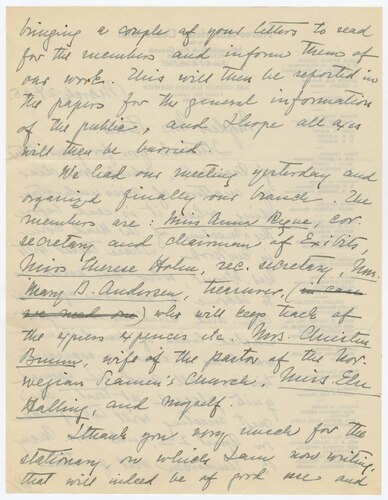 bringing a couple of your letters to read
for the members and inform them of
our work. This will then be reported in
the papers for the general information
of the public, and I hope all axes
will then be burried.
We had our meeting yesterday and
organized finally our branch. The
members are: Miss Anna, cor.
secretary and chairman of Exibits
Miss Therese Holm, rec. secretary, Mrs.
Mary B. Andersen, treasurer, (in case
we need one) who will keep track of
the express expences etc. Mrs. Christen
Bruun, wife of the pastor of the Nor-
wegian Seamen's Church, Miss Else
Halling, and myself.
I thank you very much for the
stationary, on which I am now writing,
that will indeed be of good use and